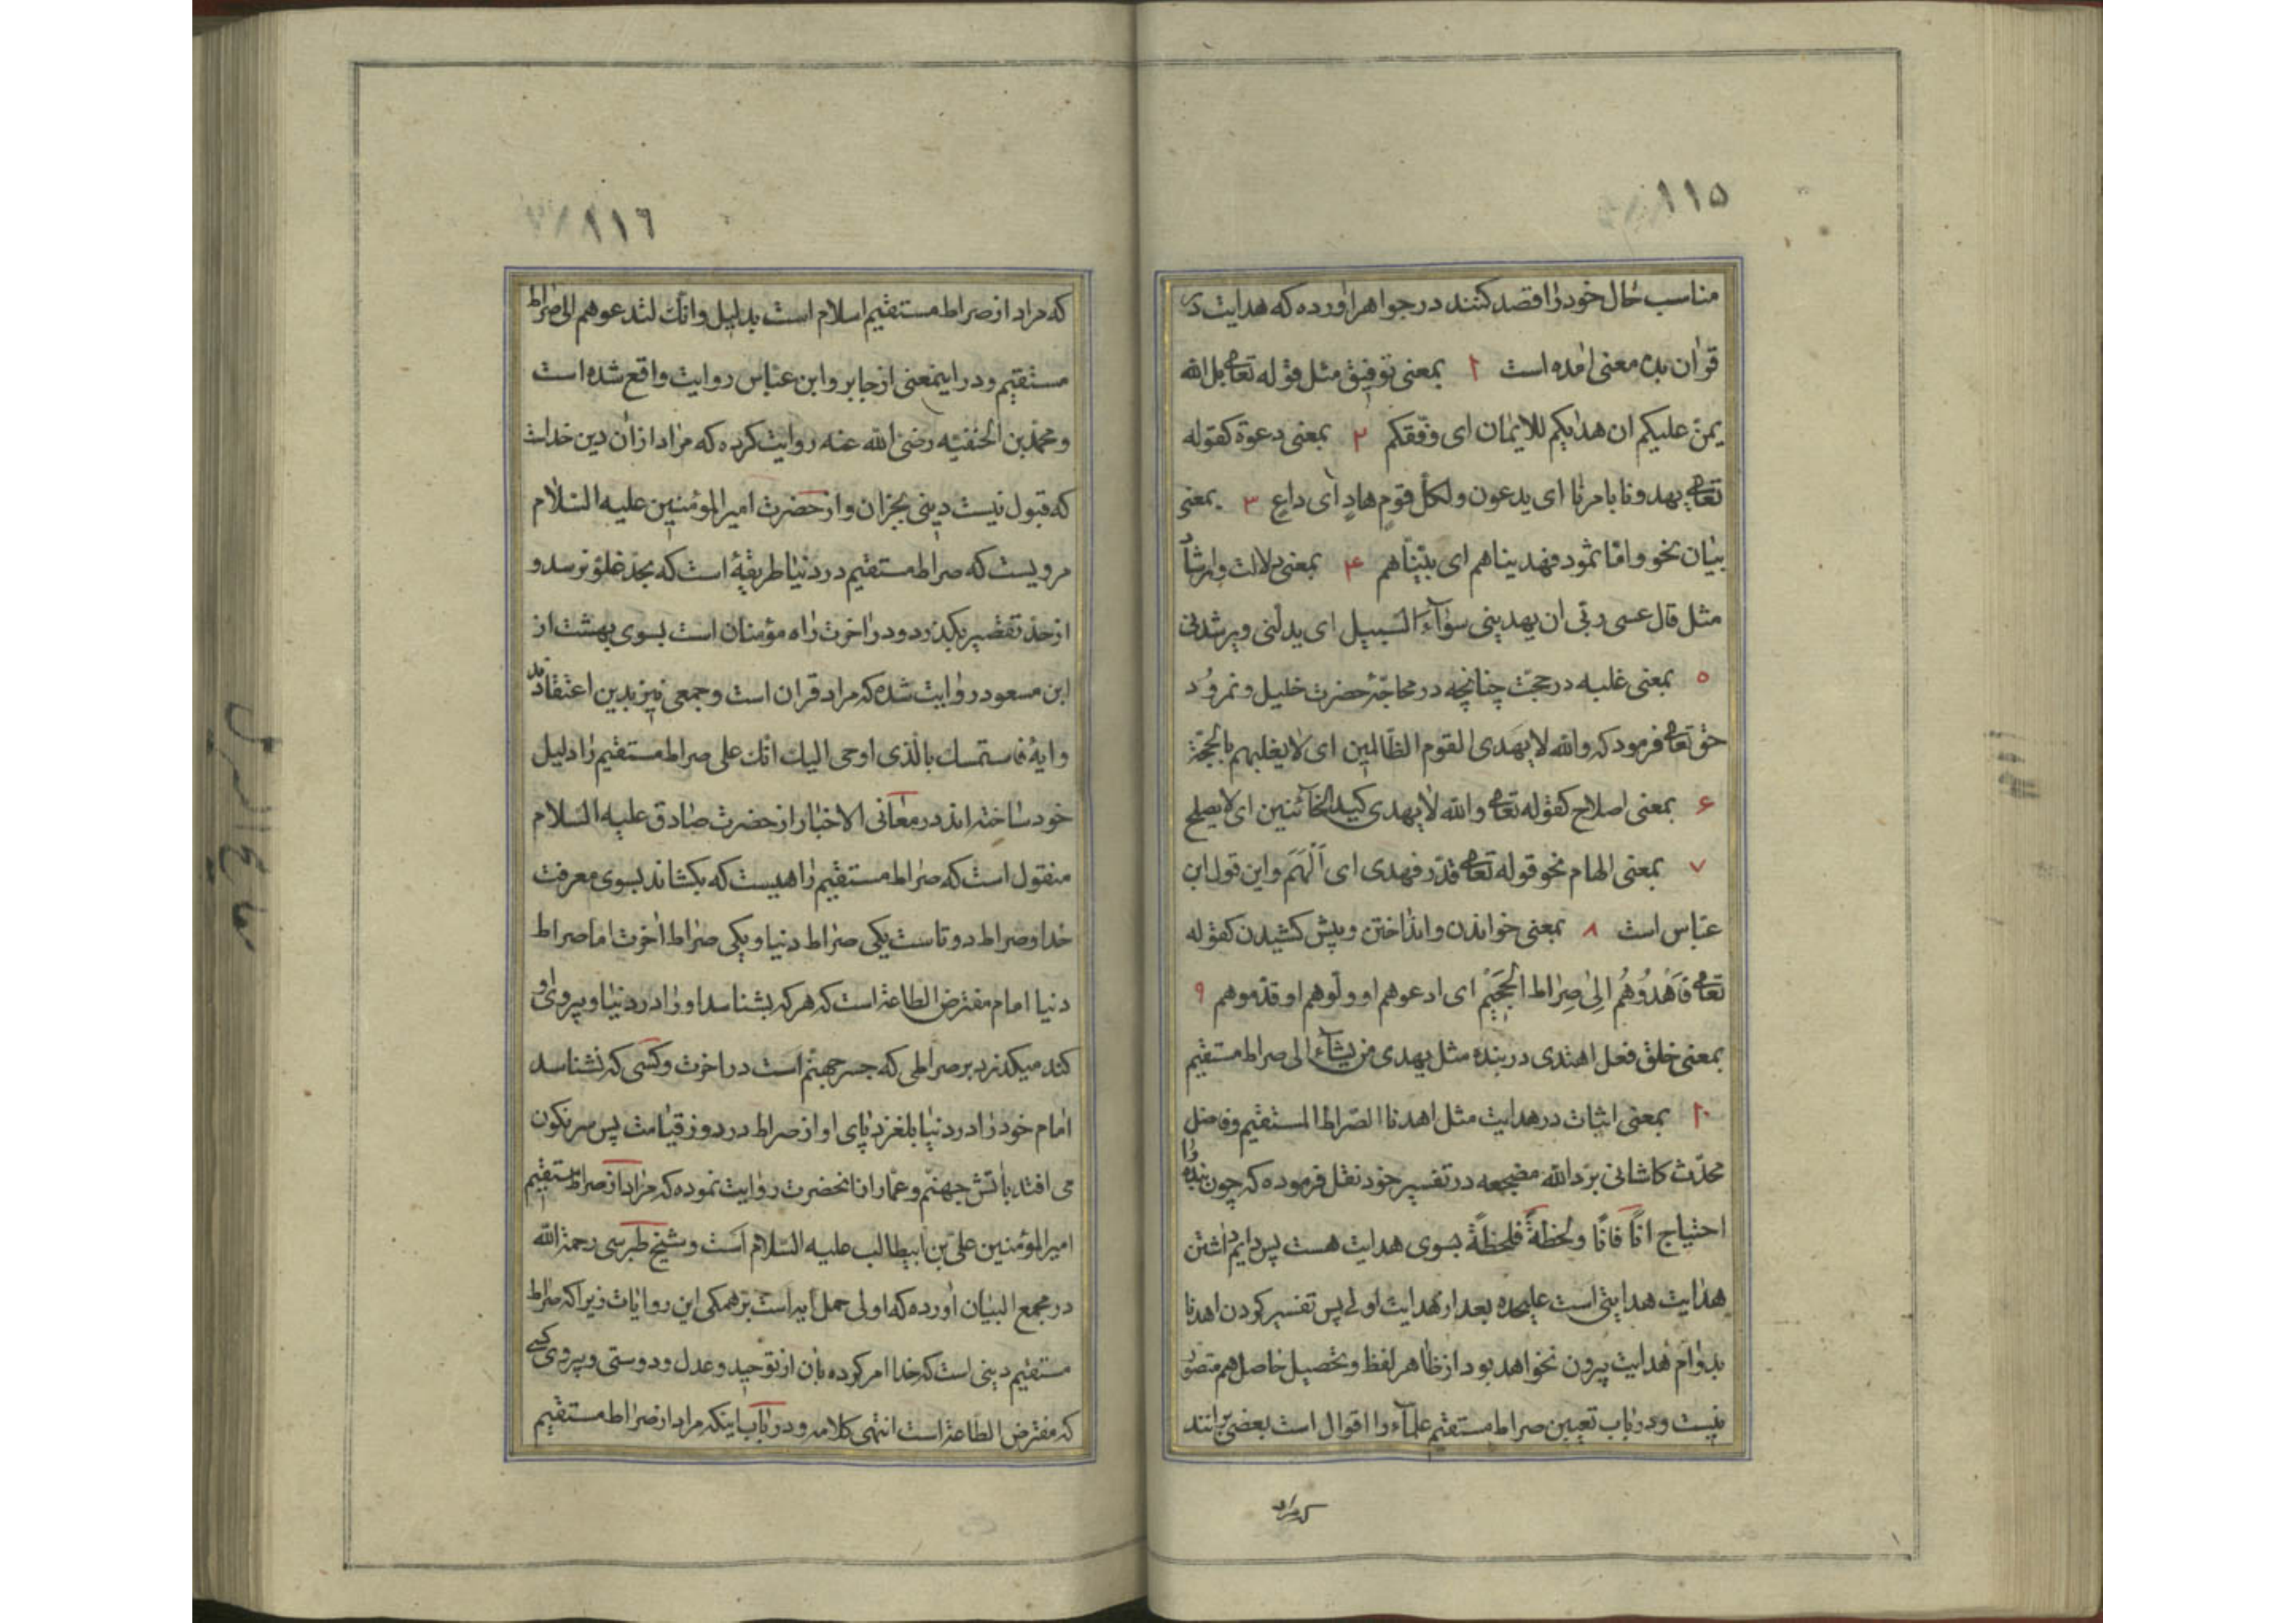 ۱۱۵
مناسب حال خود را قصد کنند در جواهر اورده که هدایت در
قران بده معنی امده است ۱ بمعنی توفیق مثل قوله تعالی بل الله
یمنّ علیکم ان هدایکم للایمان ای وفّقکم ۲ بمعنی دعوة کقوله
تعالی یهدونا بامرنا ای یدعون ولکلّ قومٍ هادٍ ای داعٍ ۳ بمعنی
بیان نحو وامّا ثمود فهدیناهم ای بیّنّاهم ۴ بمعنی دلالت وارشاد
مثل قال عسی ربّی ان یهدینی سوآء السّبیل ای یدلّنی ویرشدنی
۵ بمعنی غلبه در حجّت چنانچه در محاجّهٔ حضرت خلیل و نمرود
حق تعالی فرمود که والله لا یهدی القوم الظّالمین ای لا یغلبهم بالحجّة
۶ بمعنی اصلاح کقوله تعالی والله لا یهدی کید الخآئنین ای لا یصلح
۷ بمعنی الهام نحو قوله تعالی قدّر فهدی ای اَلْهَمَ واین قول ابن
عبّاس است ۸ بمعنی خواندن وانداختن و پیش کشیدن کقوله
تعالی فَاهْدُوهُم اِلیٰ صِراط الجَحیْم ای ادعوهم او ولّوهم او قدّموهم ۹
بمعنی خلق فعل اهتدی در بنده مثل یهدی من یشآء الی صراط مستقیم
۱۰ بمعنی اثبات در هدایت مثل اهدنا الصّراط المستقیم وفاضل
محدّث کاشانی برّد الله مضجعه در تفسیر خود نقل فرموده که چون بنده را
احتیاج اناً فاناً ولحظةً فلحظةً بسوی هدایت هست پس دایم داشتن
هدایت هدایتی است علیحده بعد از هدایت اولی پس تفسیر کردن اهدنا
بدوام هدایت بیرون نخواهد بود از ظاهر لفظ و تحصیل حاصل هم متصوّر
نیست و در باب تعیین صراط مستقیم علمآء را اقوال است بعضی برانند
که مراد
۱۱۶
که مراد از صراط مستقیم اسلام است بدلیل وانّک لتدعوهم الی صراط
مستقیم و در اینمعنی از جابر وابن عبّاس روایت واقع شده است
ومحمّد بن الحنفیّه رضی الله عنه روایت کرده که مراد از ان دین خداست
که قبول نیست دینی بجز ان واز حضرت امیر المؤمنین علیه السّلام
مرویست که صراط مستقیم در دنیا طریقهٔ است که بحدّ غلوّ نرسد و
از حدّ تقصیر بگذرد و در اخرت راه مؤمنان است بسوی بهشت از
ابن مسعود روایت شده که مراد قران است وجمعی نیز بدین اعتقادند
وایهٔ فاستمسک بالّذی اوحی الیک انّک علی صراط مستقیم را دلیل
خود ساخته اند در معانی الاخبار از حضرت صادق علیه السّلام
منقول است که صراط مستقیم راهیست که بکشاند بسوی معرفت
خدا و صراط دو تاست یکی صراط دنیا و یکی صراط اخرت اما صراط
دنیا امام مفترض الطاعة است که هر که بشناسد او را در دنیا و پیروی او
کند میکذرد بر صراطی که جسر جهنّم است در اخرت و کسی که نشناسد
امام خود را در دنیا بلغزد پای او از صراط در روز قیامت پس سرنکون
می افتد باتش جهنّم وعمّار از انحضرت روایت نموده که مراد از صراط مستقیم
امیر المؤمنین علیّ بن ابیطالب علیه السّلام است و شیخ طبرسی رحمة الله
در مجمع البیان اورده که اولی حمل ایه است بر همکی این روایات زیرا که صراط
مستقیم دینی است که خدا امر کرده بان از توحید وعدل و دوستی و پیروی کسی
که مفترض الطّاعة است انتهی کلامه و در باب اینکه مراد از صراط مستقیم